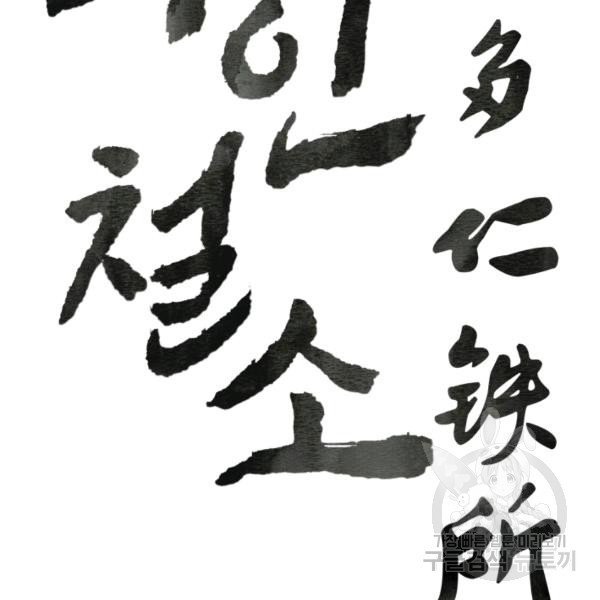 인
철
소
多仁铁所
가장빠른 웹툰미리보기
구글검색 뉴토끼